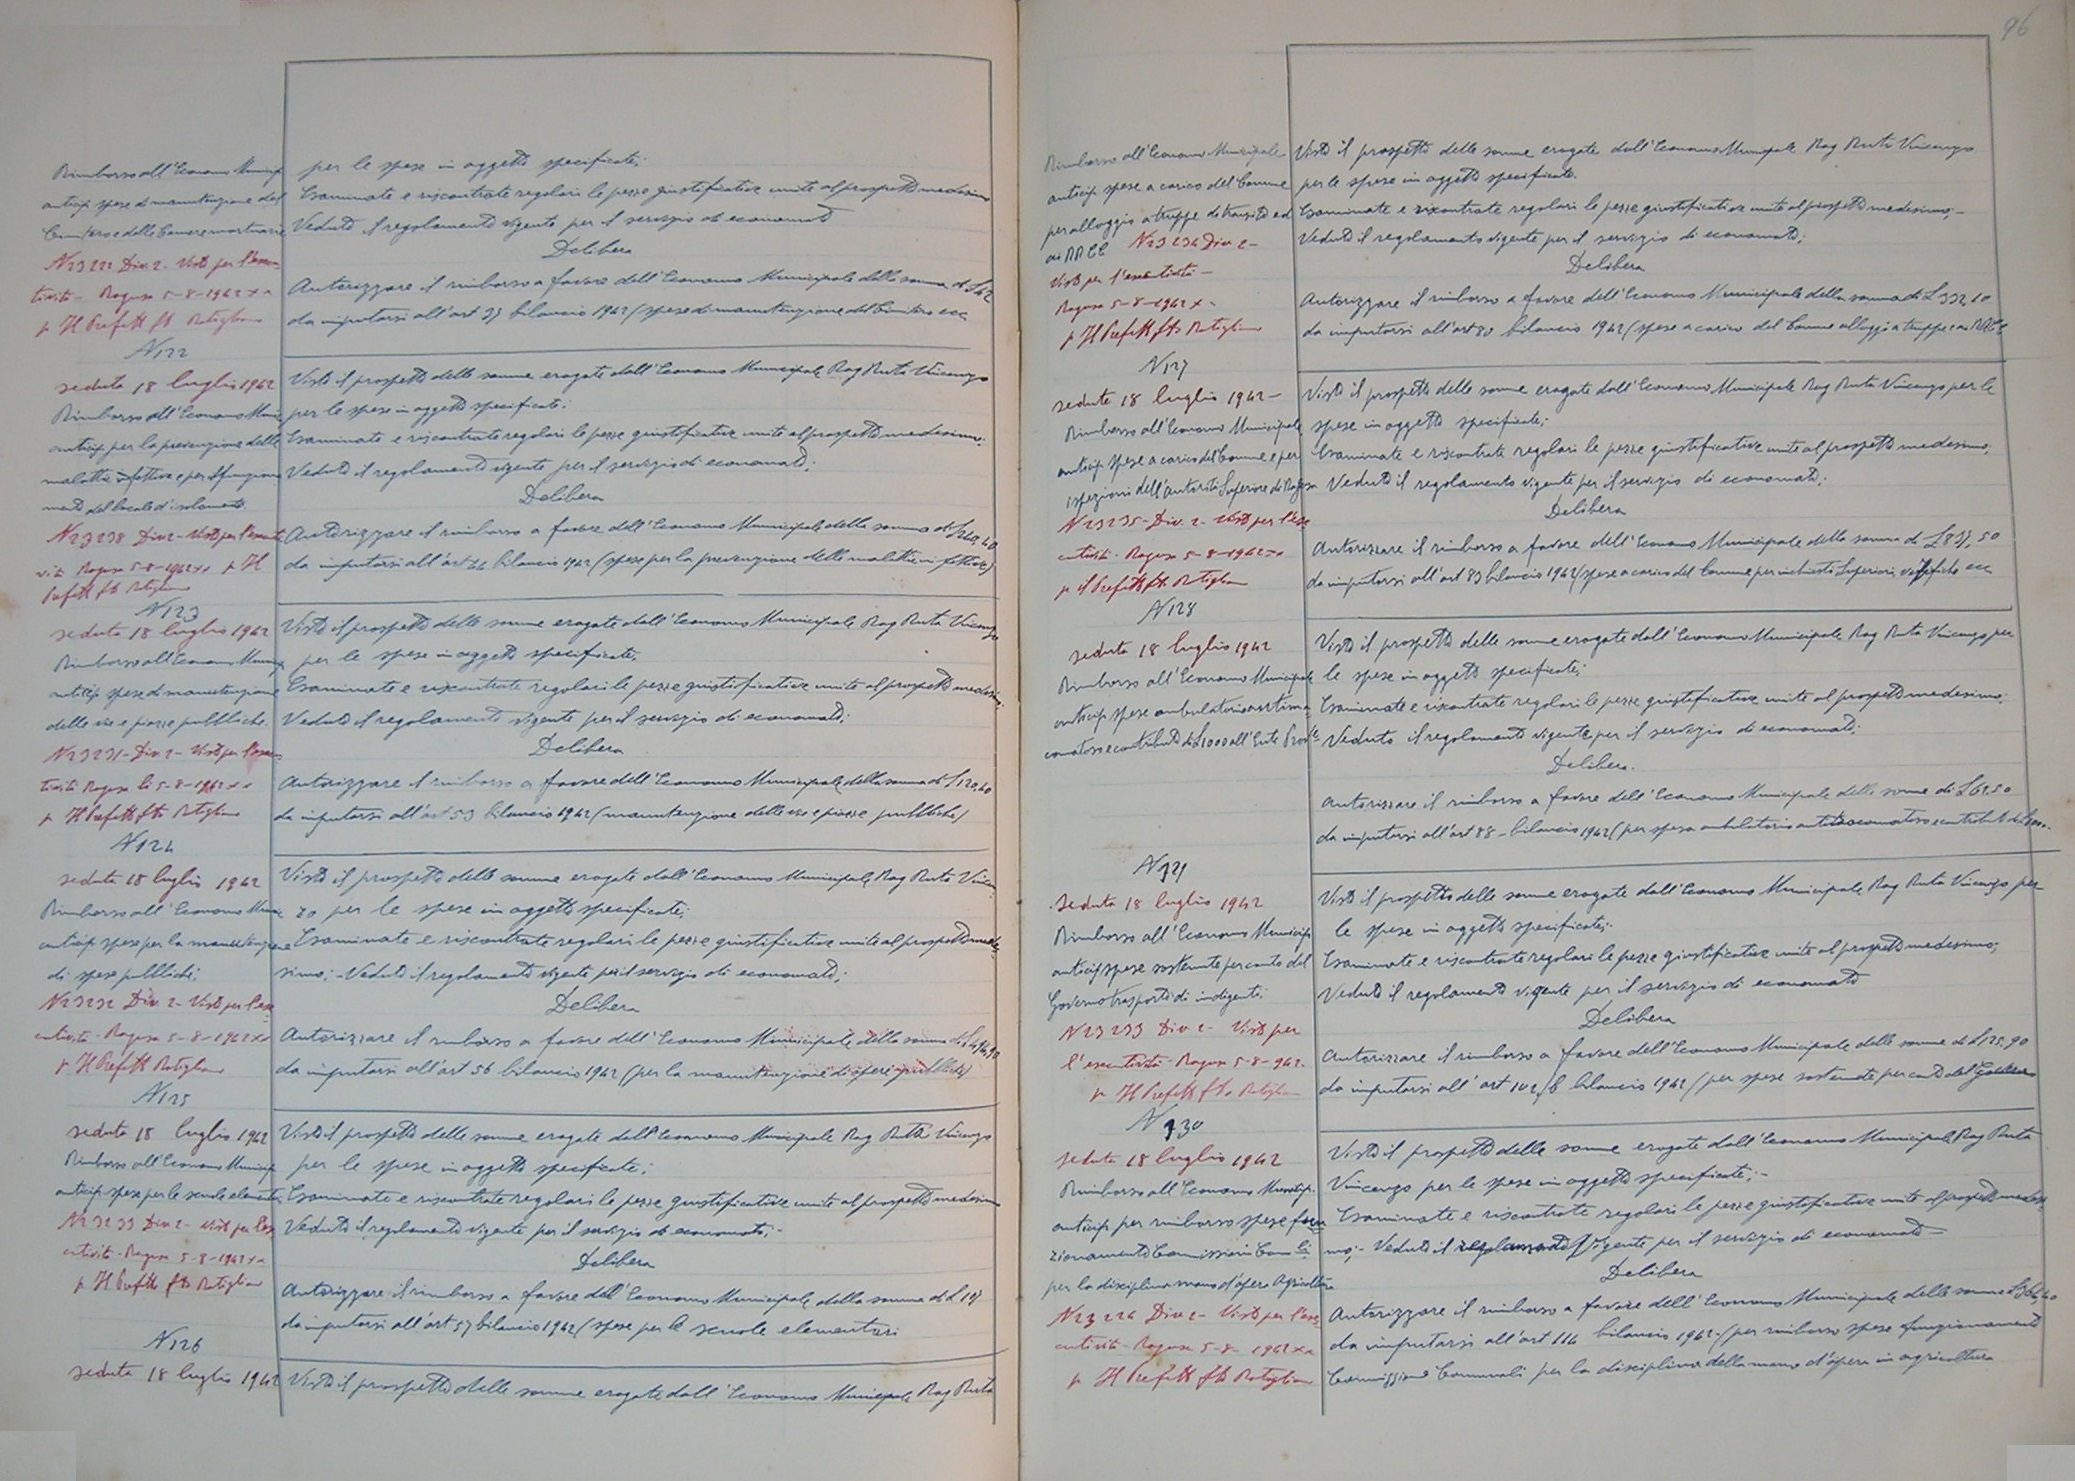 Rimborso all'Economo Municip
anticip spese di manutenzione del
Cimitero e delle Camere mortuarie
N 23222 Div. 2 - Visto per l'esecu-
tività - Ragusa 5-8-1942 XX
p Il Prefetto fto Ratiglia
per le spese in oggetto specificate;
Esaminate e riscontrate regolari le pezze giustificative unite al prospetto medesimo
Veduto il regolamento vigente per il servizio di economato
Delibera
Autorizzare il rimborso a favore dell'Economo Municipale della somma di £ 42
da imputarsi all'art 37 bilancio 1942 (spese di manutenzione del Cimitero ecc
N 122
seduta 18 luglio 1942
Rimborso all'Economo Munic
anticip per la prevenzione delle
malattie infettive e per il funziona
mento del locale d'isolamento.
N 23238 Div 2 - Visto per l'esecuti
vità Ragusa 5-8-1942 XX p Il
Prefetto fto Ratiglia
Visto il prospetto delle somme erogate dall'Economo Municipale Rag Ruta Vincenzo
per le spese in oggetto specificate;
Esaminate e riscontrate regolari le pezze giustificative unite al prospetto medesimo;
Veduto il regolamento vigente per il servizio di economato;
Delibera
Autorizzare il rimborso a favore dell'Economo Municipale della somma di £ 240,40
da imputarsi all'art 44 bilancio 1942 (spese per la prevenzione delle malattie infettive)
N 123
seduta 18 luglio 1942
Rimborso all'Economo Municip
anticip spese di manutenzione
delle vie e piazze pubbliche.
N 23231 - Div 2 - Visto per l'esecu-
tività Ragusa li 5-8-1942 XX
p Il Prefetto fto Ratiglia
Visto il prospetto delle somme erogate dall'Economo Municipale Rag Ruta Vincenzo
per le spese in oggetto specificate;
Esaminate e riscontrate regolari le pezze giustificative unite al prospetto medesimo;
Veduto il regolamento vigente per il servizio di economato;
Delibera
Autorizzare il rimborso a favore dell'Economo Municipale della somma di £ 120,40
da imputarsi all'art 53 bilancio 1942 (manutenzione delle vie e piazze pubbliche)
N 124
seduta 18 luglio 1942
Rimborso all'Economo Munic
anticip spese per la manutenzione
di spese pubblici;
N 23232 Div. 2 - Visto per l'ese
cutività - Ragusa 5-8-1942 XX
p Il Prefetto Ratiglia
Visto il prospetto delle somme erogate dall'Economo Municipale Rag Ruta Vincen
zo per le spese in oggetto specificate;
Esaminate e riscontrate regolari le pezze giustificative unite al prospetto mede-
simo; - Veduto il regolamento vigente per il servizio di economato;
Delibera
Autorizzare il rimborso a favore dell'Economo Municipale della somma di £ 494,90
da imputarsi all'art 56 bilancio 1942 (per la manutenzione di spese pubblici)
N 125
seduta 18 luglio 1942
Rimborso all'Economo Municip
anticip spese per le scuole elementari
N 23233 Div 2 - Visto per l'es
cutività - Ragusa 5-8-1942 XX
p Il Prefetto fto Ratiglia
Visto il prospetto delle somme erogate dall'Economo Municipale Rag Ruta Vincenzo
per le spese in oggetto specificate;
Esaminate e riscontrate regolari le pezze giustificative unite al prospetto medesimo
Veduto il regolamento vigente per il servizio di economato; -
Delibera
Autorizzare il rimborso a favore dell'Economo Municipale della somma di £ 107
da imputarsi all'art 57 bilancio 1942 (spese per le scuole elementari
N 126
seduta 18 luglio 1942
Visto il prospetto delle somme erogate dall'Economo Municipale Rag Ruta
96
Rimborso all'Economo Municipale
anticip spese a carico del Comune
per alloggio a truppe di transito ed
ai RR CC N 23234 Div 2 -
Visto per l'esecutività -
Ragusa 5-8-1942 X -
p Il Prefetto fto Ratiglia
Visto il prospetto delle somme erogate dall'Economo Municipale Rag Ruta Vincenzo
per le spese in oggetto specificate.
Esaminate e riscontrate regolari le pezze giustificative unite al prospetto medesimo; -
Veduto il regolamento vigente per il servizio di economato;
Delibera
Autorizzare il rimborso a favore dell'Economo Municipale della somma di £ 332,10
da imputarsi all'art 80 bilancio 1942 (spese a carico del Comune alloggi a truppe e ai RR CC
N 127
seduta 18 luglio 1942 -
Rimborso all'Economo Municipale
anticip spese a carico del Comune e per
ispezioni dell'autorità Superiore di Ragusa
N 23235 - Div. 2 - Visto per l'ese
cutività - Ragusa 5-8-1942 XX
p il Prefetto fto Ratiglia
Visto il prospetto delle somme erogate dall'Economo Municipale Rag Ruta Vincenzo per le
spese in oggetto specificate;
Esaminate e riscontrate regolari le pezze giustificative unite al prospetto medesimo;
Veduto il regolamento vigente per il servizio di economato;
Delibera
Autorizzare il rimborso a favore dell'Economo Municipale della somma di £ 837,50
da imputarsi all'art 83 bilancio 1942 (spese a carico del Comune per inchieste Superiori, verifiche ecc
N 128
seduta 18 luglio 1942
Rimborso all'Economo Municipale
anticip spese ambulatorio antitra
comatoso e contributo di £ 1000 all'Ente Provle
Visto il prospetto delle somme erogate dall'Economo Municipale Rag Ruta Vincenzo per
le spese in oggetto specificate;
Esaminate e riscontrate regolari le pezze giustificative unite al prospetto medesimo;
Veduto il regolamento vigente per il servizio di economato;
Delibera.
Autorizzare il rimborso a favore dell'Economo Municipale delle somme di £ 62,50
da imputarsi all'art 88 - bilancio 1942 (per spesa ambulatorio antitracomatoso e contributo di £ 1000.
N 129
seduta 18 luglio 1942
Rimborso all'Economo Municip
anticip spese sostenute per conto del
Governo trasporto di indigenti;
N 23233 Div 2 - Visto per
l'esecutività - Ragusa 5-8-942.
p Il Prefetto fto Ratiglia
Visto il prospetto delle somme erogate dall'Economo Municipale Rag Ruta Vincenzo per
le spese in oggetto specificate;
Esaminate e riscontrate regolari le pezze giustificative unite al prospetto medesimo;
Veduto il regolamento vigente per il servizio di economato
Delibera
Autorizzare il rimborso a favore dell'Economo Municipale delle somme di £ 125,90
da imputarsi all'art 102/b bilancio 1942 (per spese sostenute per conto del Governo
N 130
seduta 18 luglio 1942
Rimborso all'Economo Municip.
anticip per rimborso spese fun
zionamento Commissioni Comli
per la disciplina mano d'opera Agricoltura
N 23226 Div 2 - Visto per l'ese
cutività - Ragusa 5-8-1942 XX
p Il Prefetto fto Ratiglia
Visto il prospetto delle somme erogate dall'Economo Municipale Rag Ruta
Vincenzo per le spese in oggetto specificate; -
Esaminate e riscontrate regolari le pezze giustificative unite al prospetto medesi
mo; - Veduto il regolamento vigente per il servizio di economato -
Delibera
Autorizzare il rimborso a favore dell'Economo Municipale delle somme £ 364,40
da imputarsi all'art 114 bilancio 1942 - (per rimborso spese funzionamento
Commissione Comunali per la disciplina della mano d'opera in agricoltura